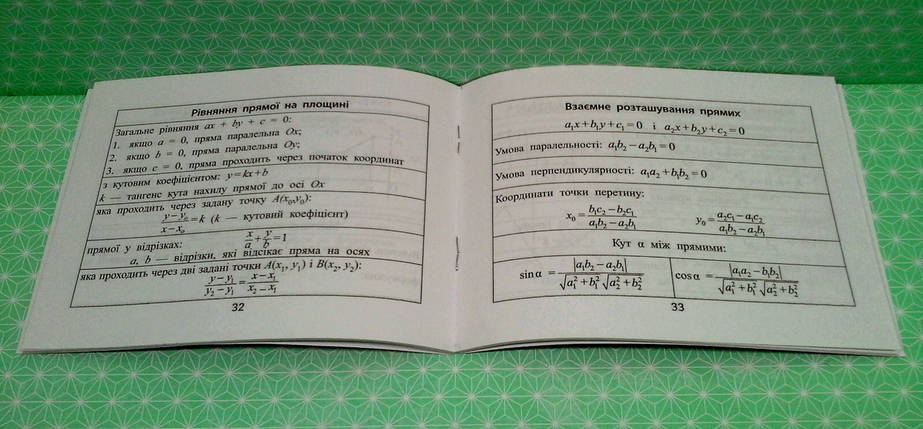 Рівняння прямої на площині
Загальне рівняння ax + by + c = 0:
1. якщо a = 0, пряма паралельна Ox;
2. якщо b = 0, пряма паралельна Oy;
3. якщо c = 0, пряма проходить через початок координат
з кутовим коефіцієнтом: y=kx+b
k — тангенс кута нахилу прямої до осі Ox
яка проходить через задану точку A(x₀,y₀):
(y−y₀)/(x−x₀)=k (k — кутовий коефіцієнт)
прямої у відрізках: x/a+y/b=1
a, b — відрізки, які відсікає пряма на осях
яка проходить через дві задані точки A(x₁, y₁) і B(x₂, y₂):
(y−y₁)/(y₂−y₁)=(x−x₁)/(x₂−x₁)
32
Взаємне розташування прямих
a₁x+b₁y+c₁=0 і a₂x+b₂y+c₂=0
Умова паралельності: a₁b₂−a₂b₁=0
Умова перпендикулярності: a₁a₂+b₁b₂=0
Координати точки перетину:
x₀=(b₁c₂−b₂c₁)/(a₁b₂−a₂b₁) y₀=(a₂c₁−a₁c₂)/(a₁b₂−a₂b₁)
Кут α між прямими:
sin α=|a₁b₂−a₂b₁|/(√(a₁²+b₁²)√(a₂²+b₂²)) cos α=|a₁a₂−b₁b₂|/(√(a₁²+b₁²)√(a₂²+b₂²))
33